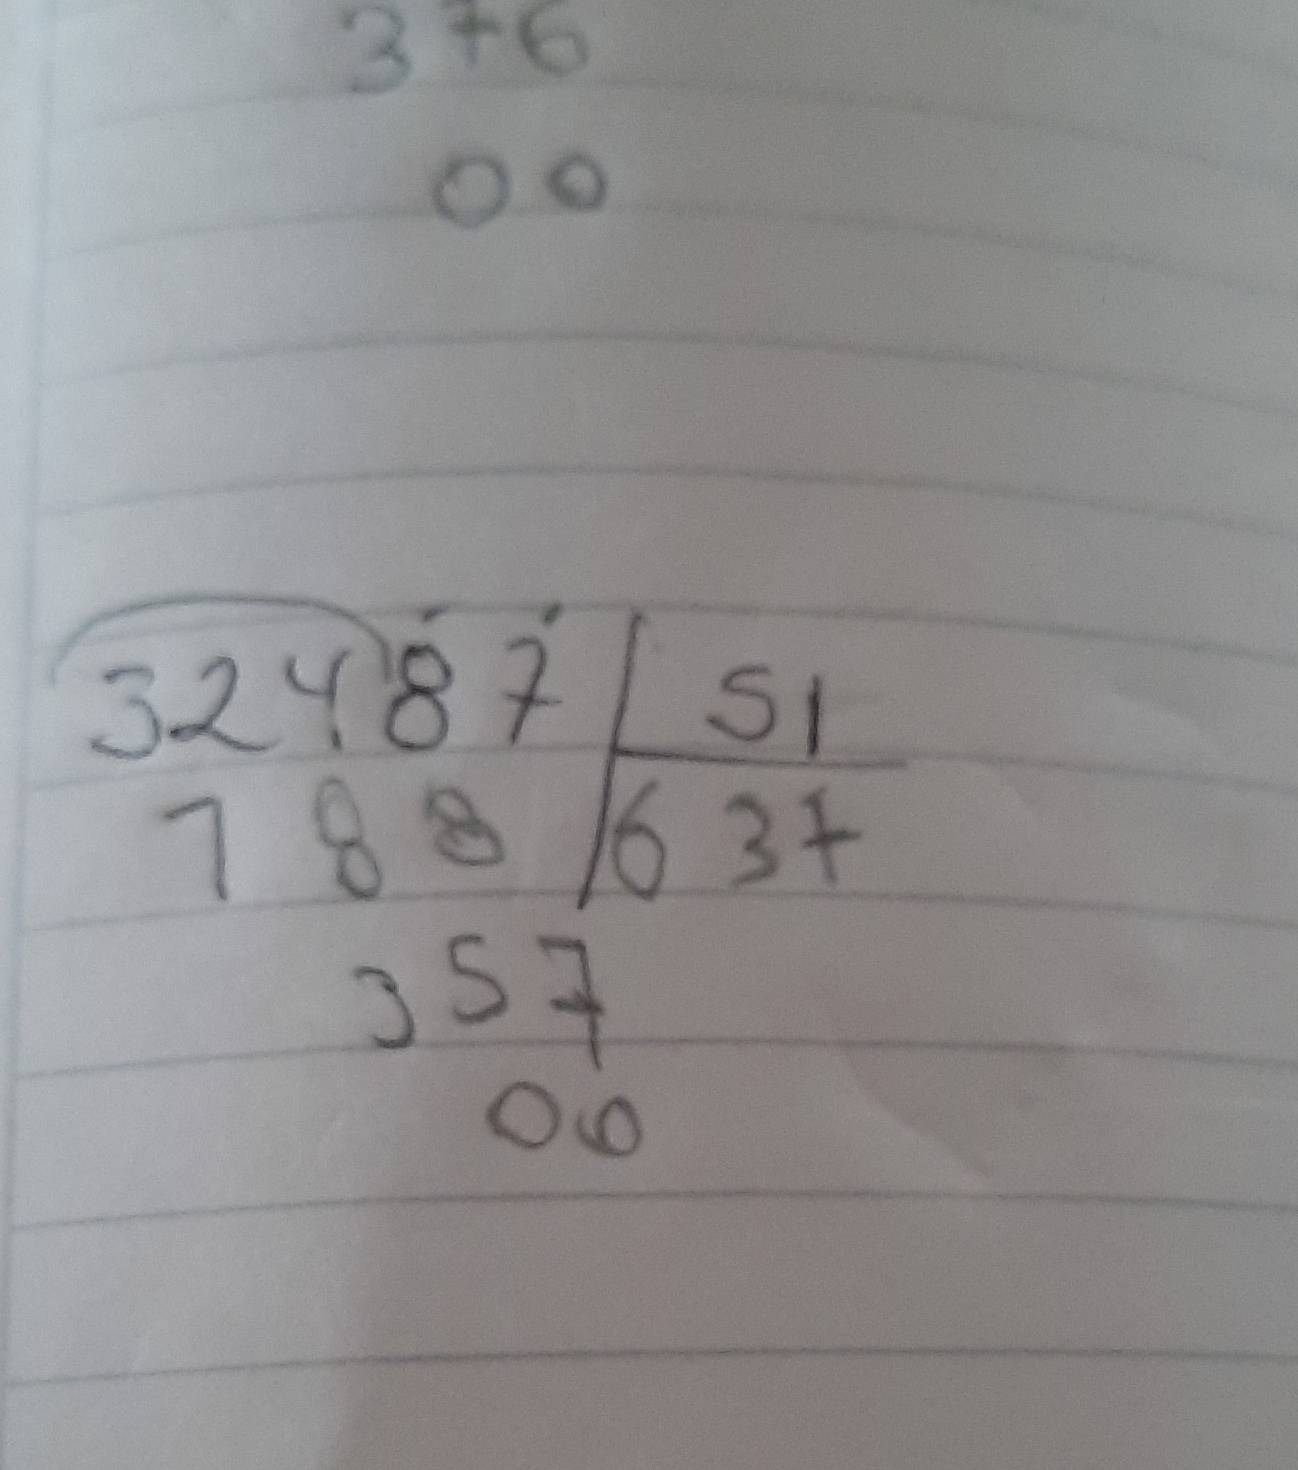 376
00
324.87 51
188 637
357
00